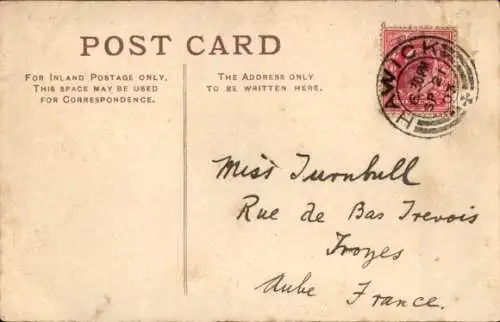 POST CARD
FOR INLAND POSTAGE ONLY,
THIS SPACE MAY BE USED
FOR CORRESPONDENCE.
THE ADDRESS ONLY
TO BE WRITTEN HERE.
HAWICK
Miss Turnbull
Rue de Bas Trevois
Troyes
Aube France.